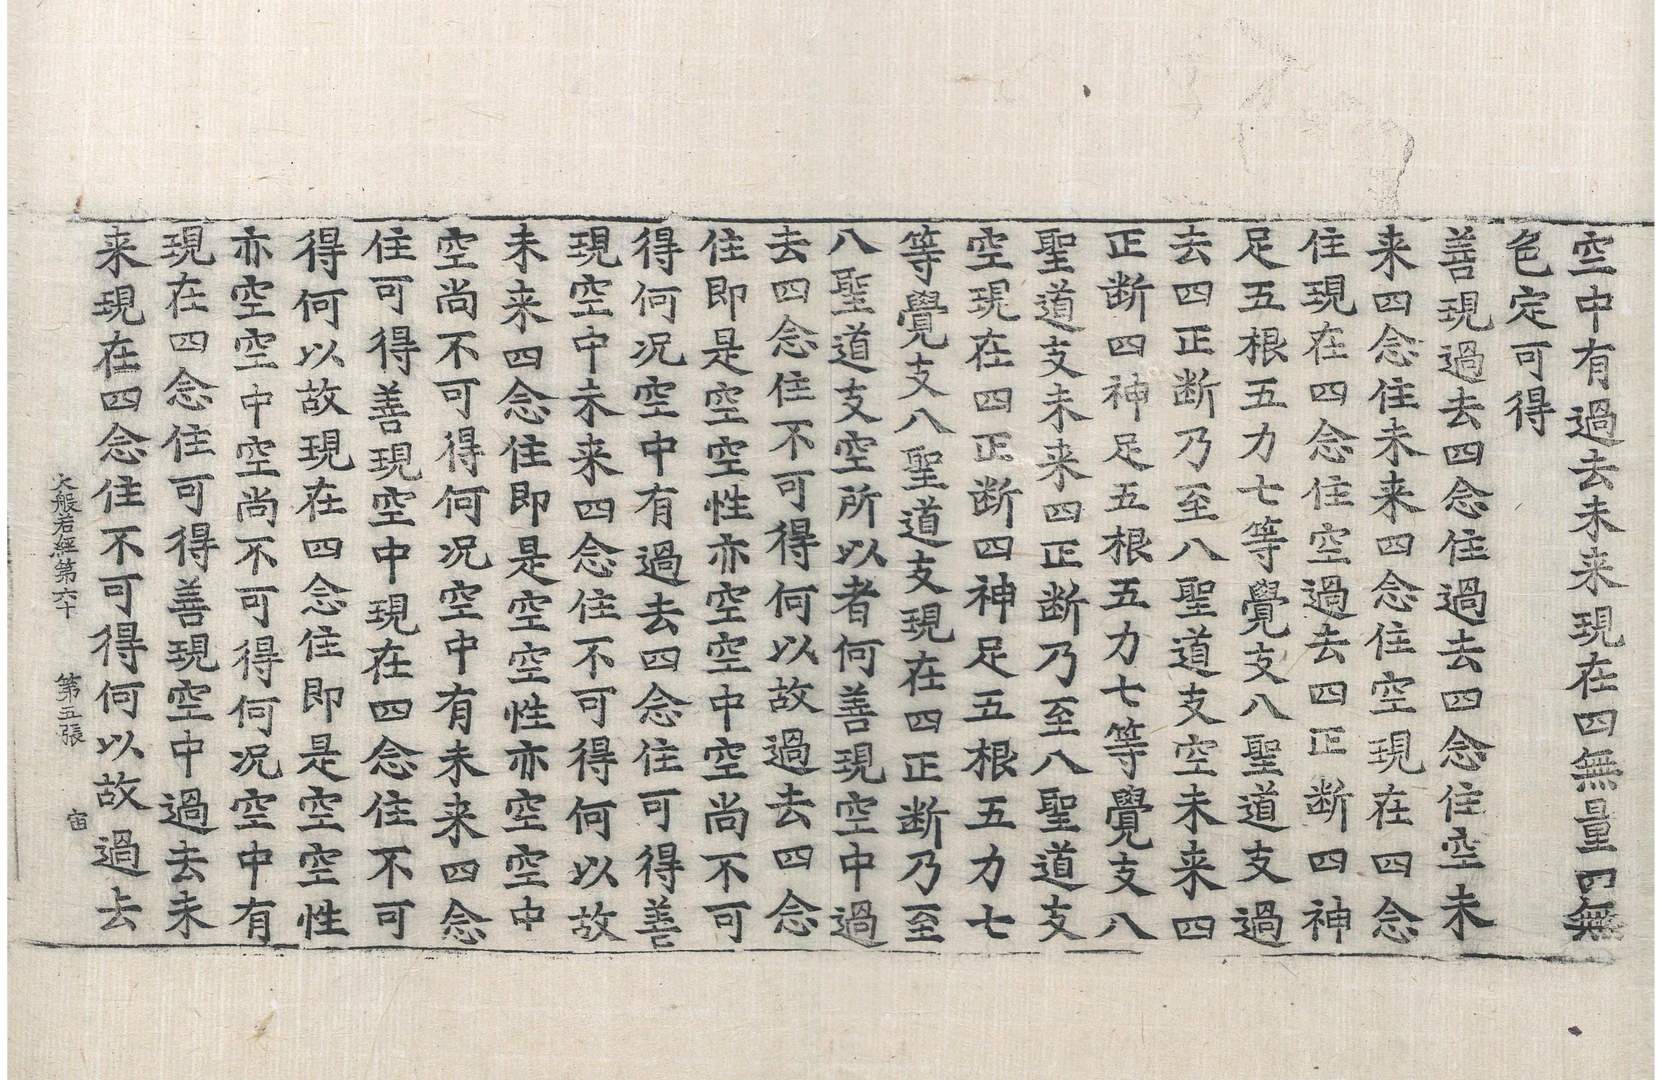 空中有過去未来現在四無量四無
色定可得
善現過去四念住過去四念住空未
来四念住未来四念住空現在四念
住現在四念住空過去四正断四神
足五根五力七等覺支八聖道支過
去四正断乃至八聖道支空未来四
正断四神足五根五力七等覺支八
聖道支未来四正断乃至八聖道支
空現在四正断四神足五根五力七
等覺支八聖道支現在四正断乃至
八聖道支空所以者何善現空中過
去四念住不可得何以故過去四念
住即是空空性亦空空中空尚不可
得何况空中有過去四念住可得善
現空中未来四念住不可得何以故
未来四念住即是空空性亦空空中
空尚不可得何况空中有未来四念
住可得善現空中現在四念住不可
得何以故現在四念住即是空空性
亦空空中空尚不可得何况空中有
現在四念住可得善現空中過去未
来現在四念住不可得何以故過去
大般若經第六十 第五張 宙